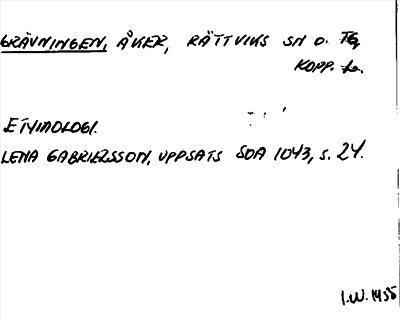 GRÄVNINGEN, ÅKER, RÄTTVIKS SN O. TG,
KOPP. L.
ETYMOLOGI.
LENA GABRIELSSON, UPPSATS SOA 1043, S. 24.
I.W. 1955